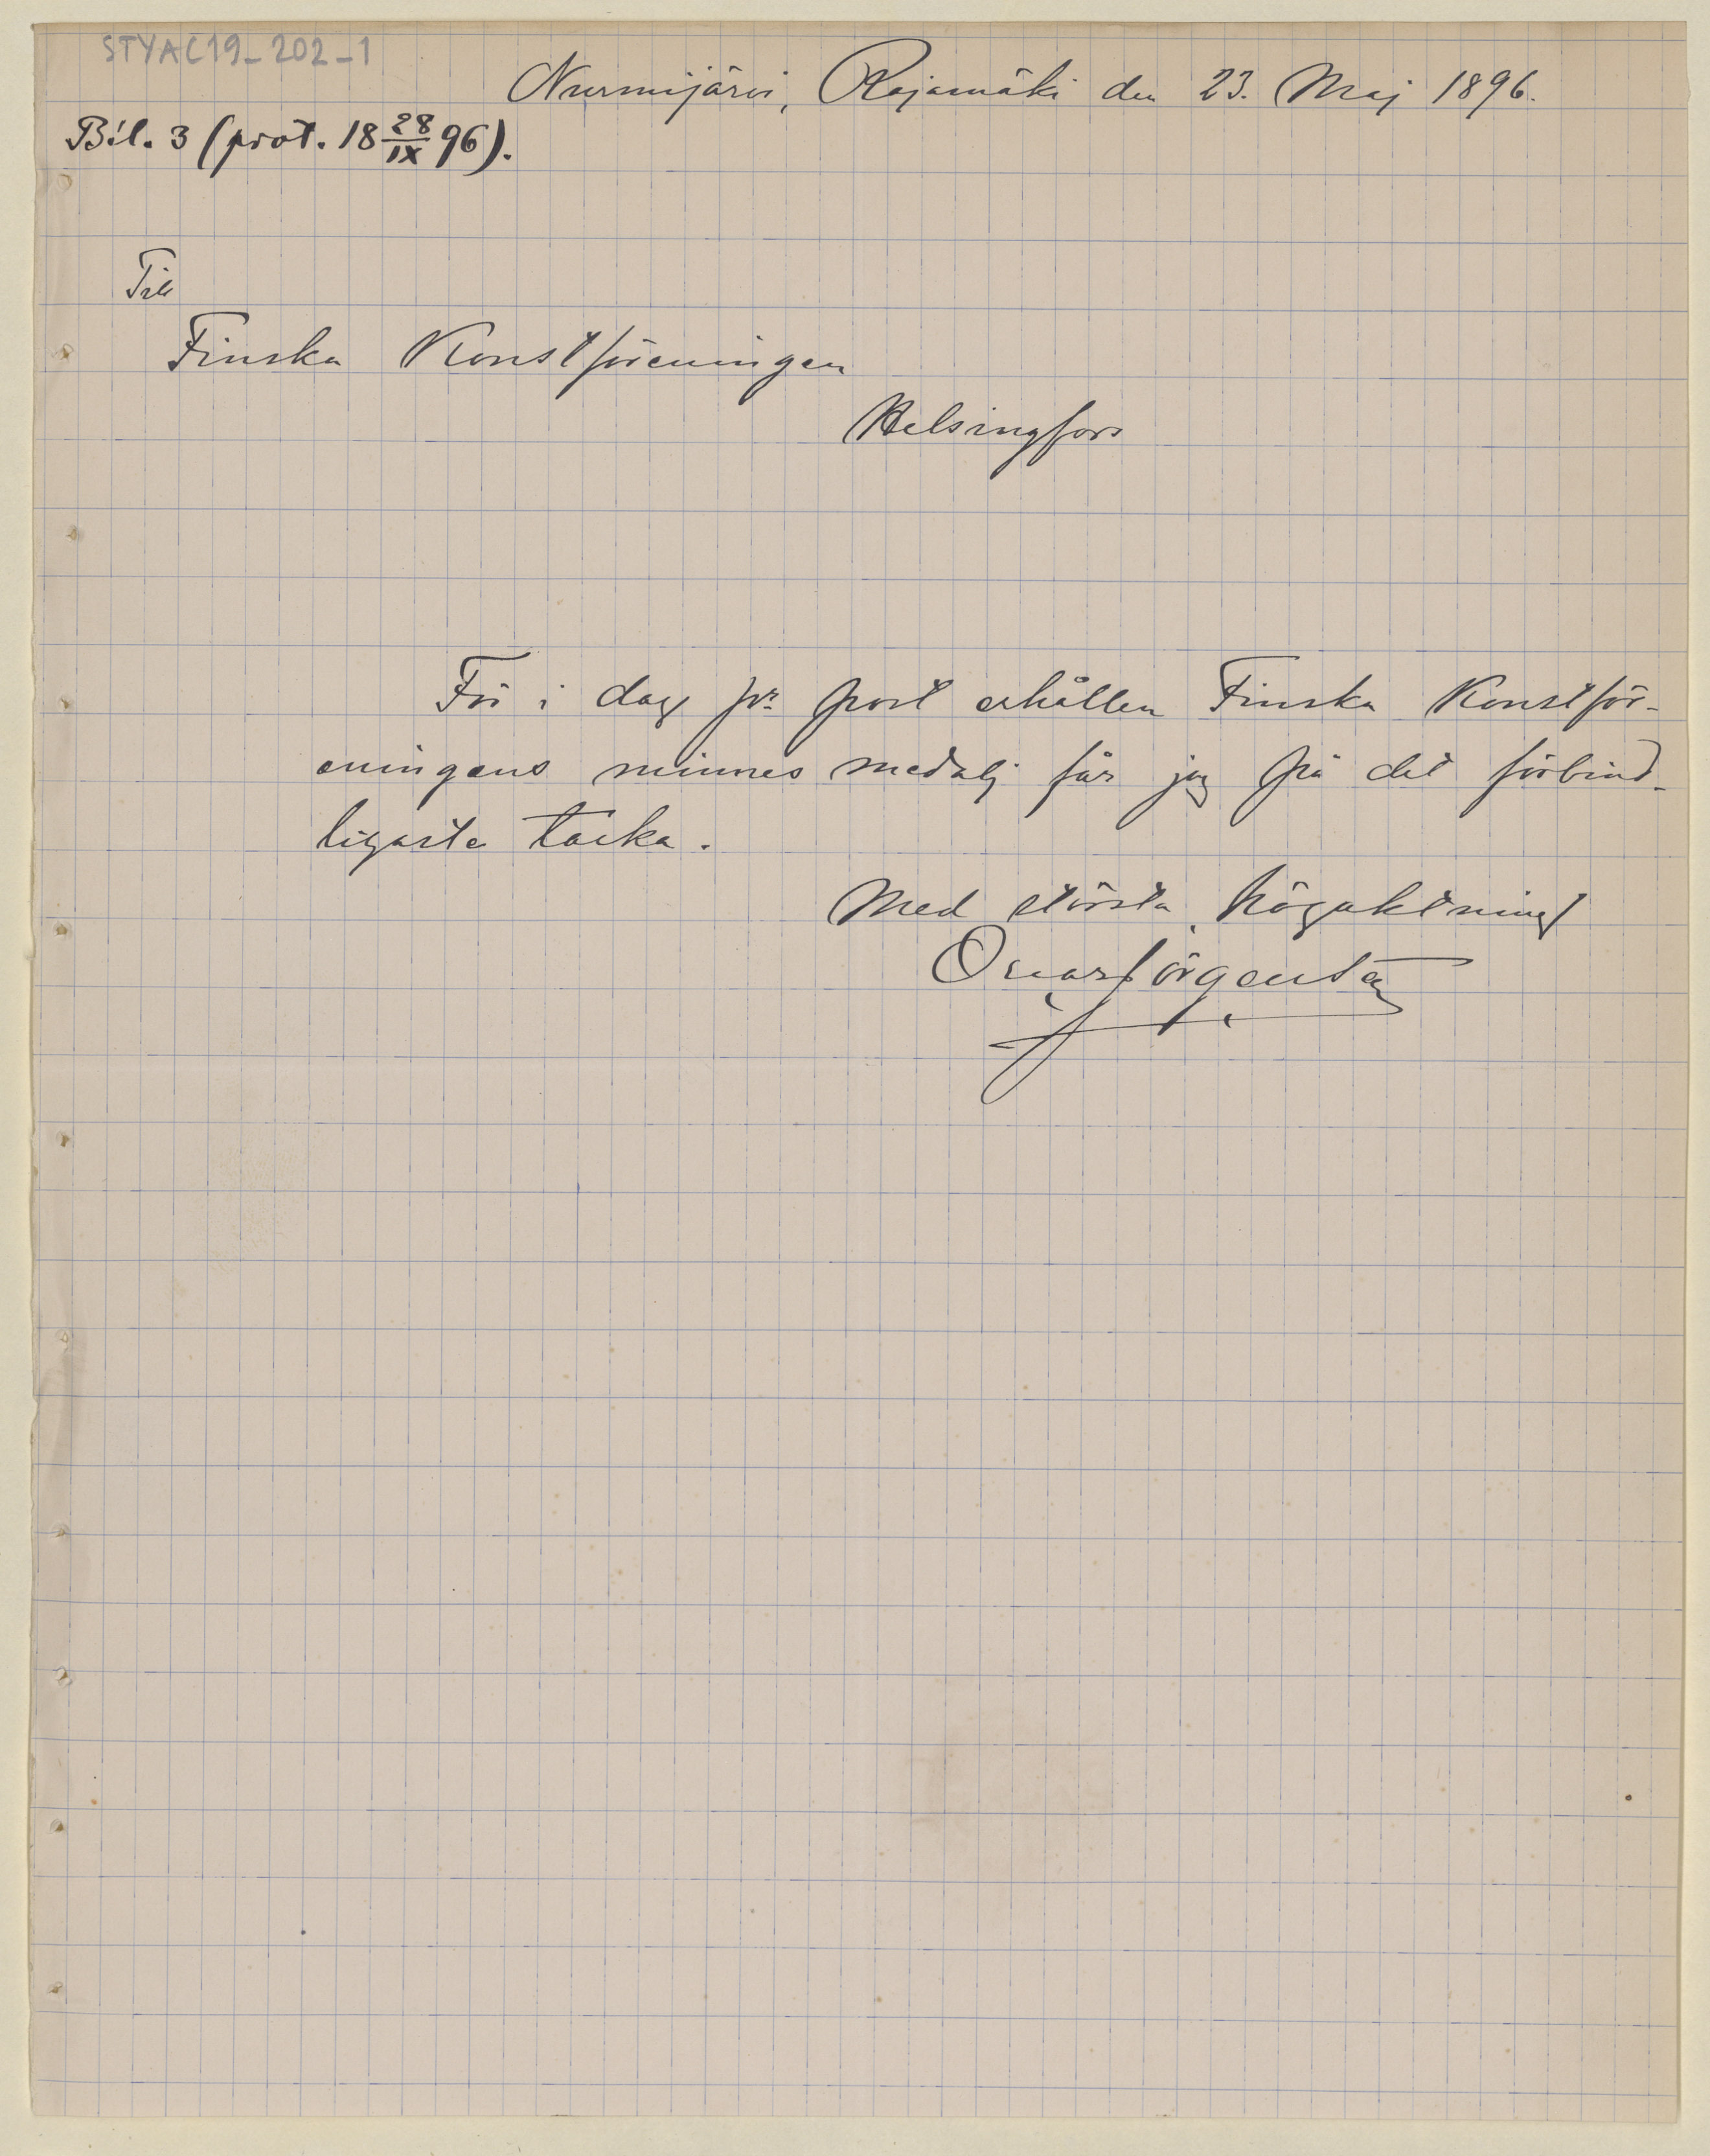 STYAC19_202_1
Nurmijärvi, Rajamäki den 23. Maj 1896.
Bil. 3 (prot. 18 28/IX 96).
Till
Finska Konstföreningen
Helsingfors
För i dag pr post erhållen Finska Konstför-
eningens minnes medalj får jag på det förbind-
ligaste tacka.
Med största högaktning